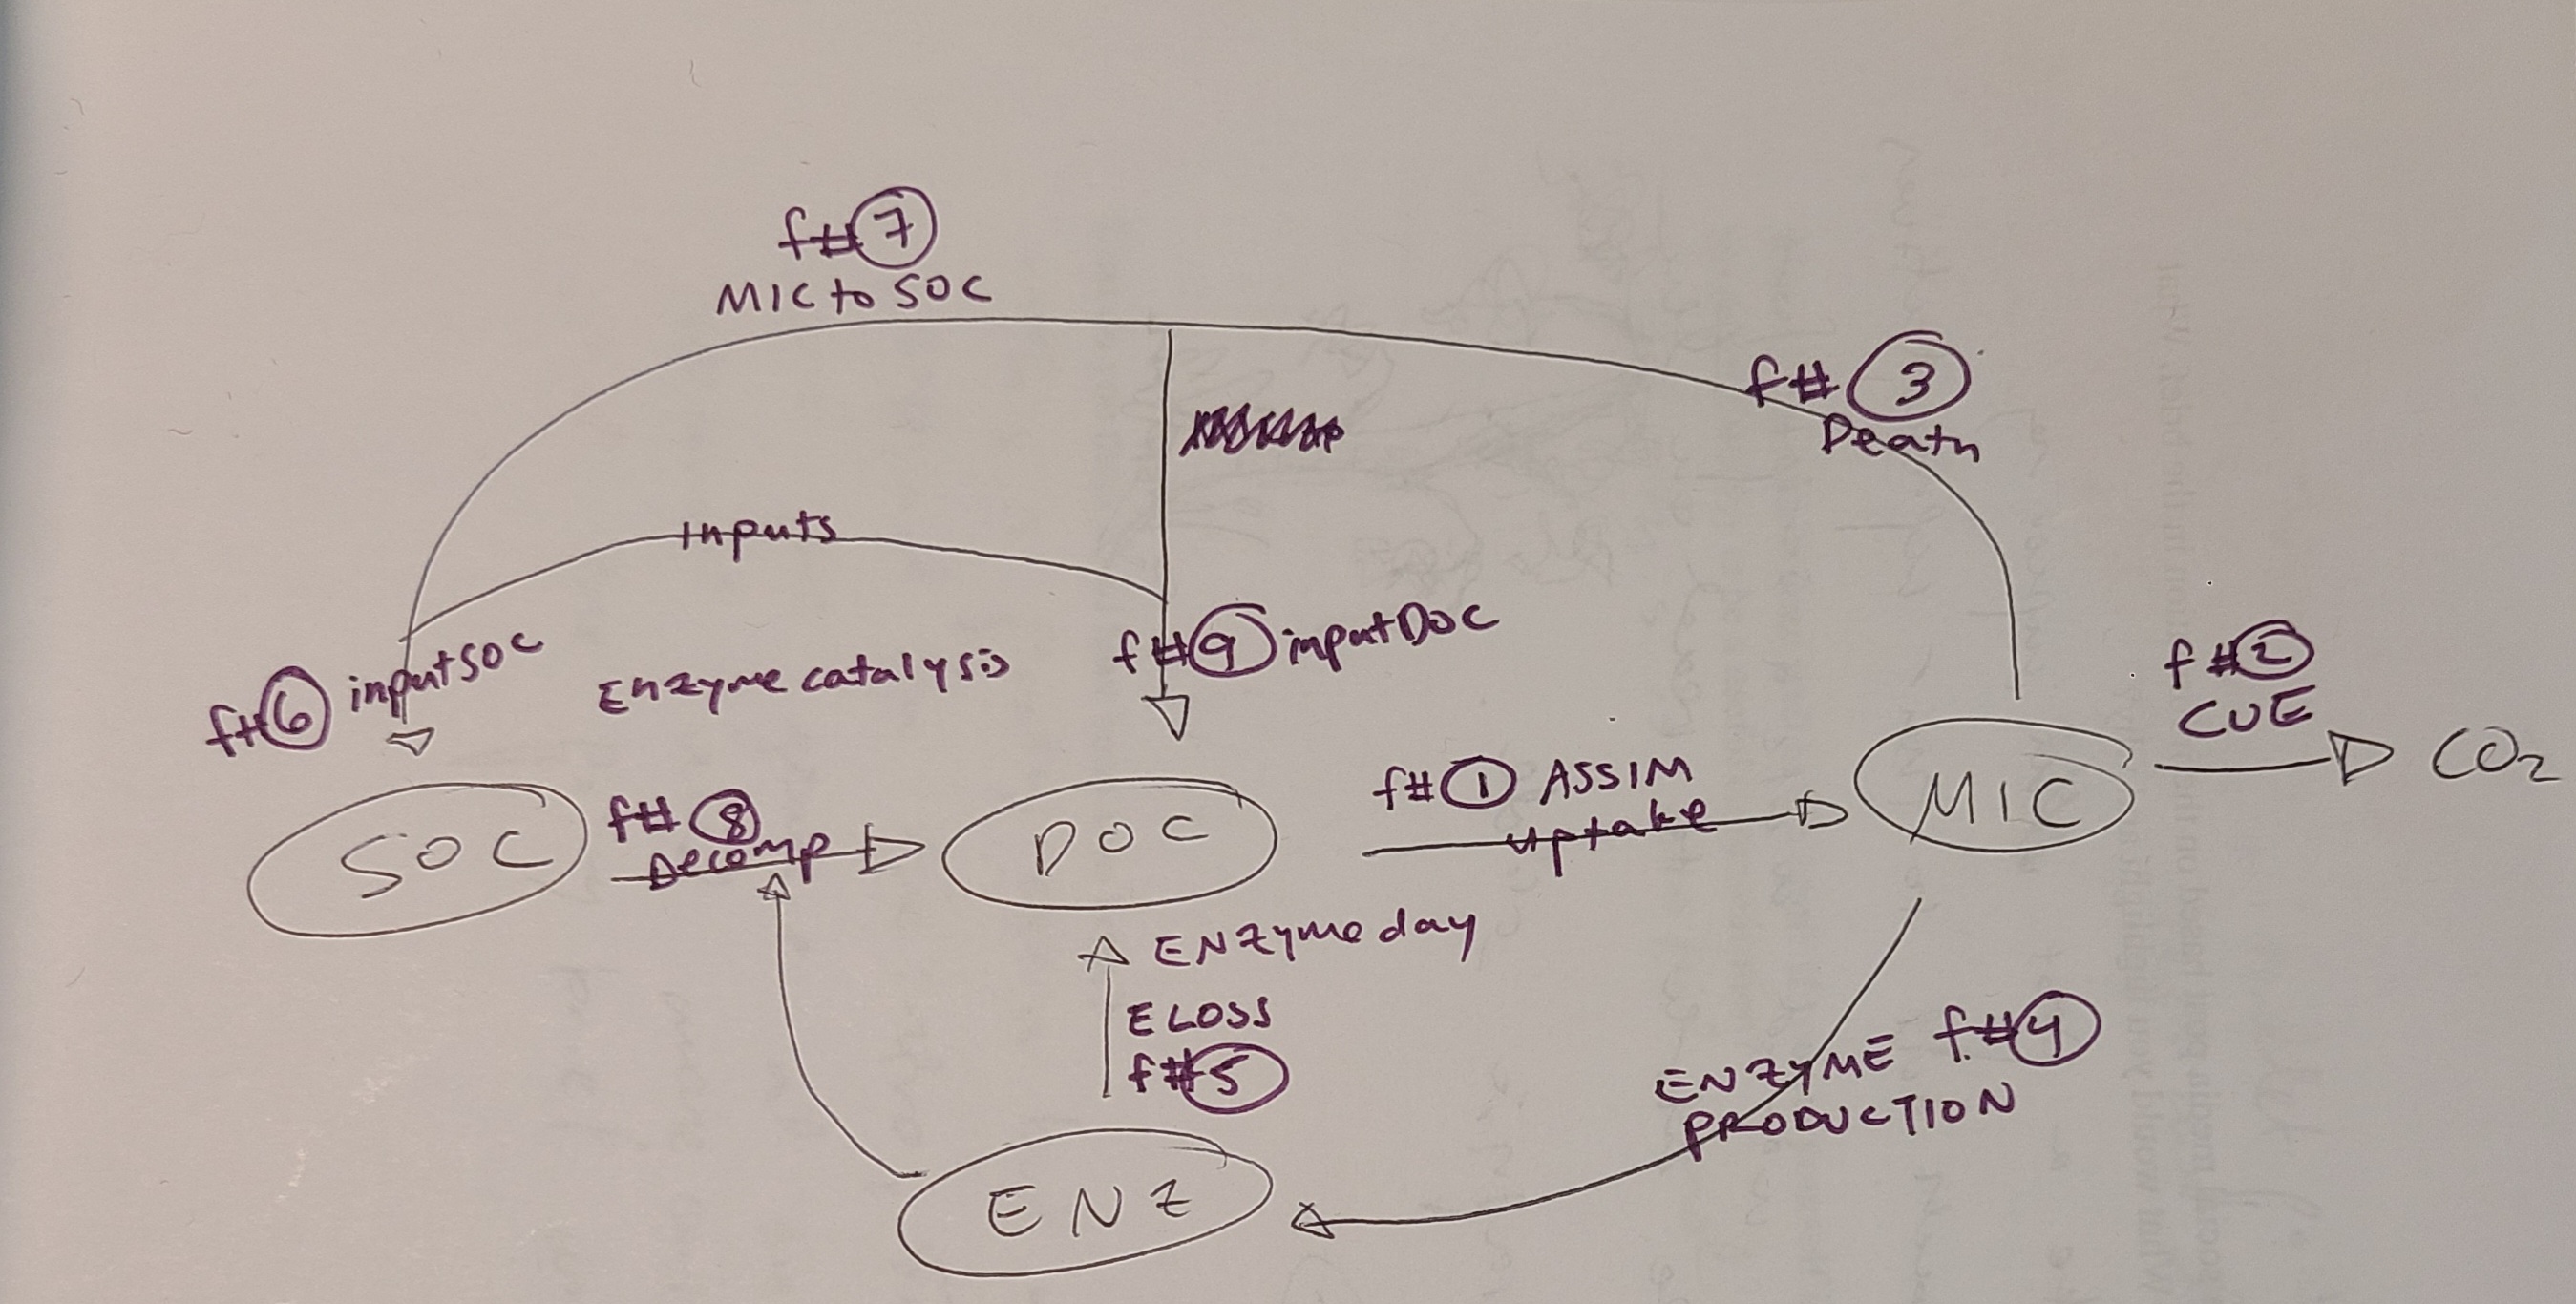 f#7
MIC to SOC
f#3
Death
Inputs
f#6 inputSOC
Enzyme catalysis
f#9 inputDOC
f#2
CUE
CO2
SOC
f#8
Decomp
DOC
f#1 ASSIM
uptake
MIC
ENZyme day
E LOSS
f#5
ENZYME f#4
PRODUCTION
ENZ